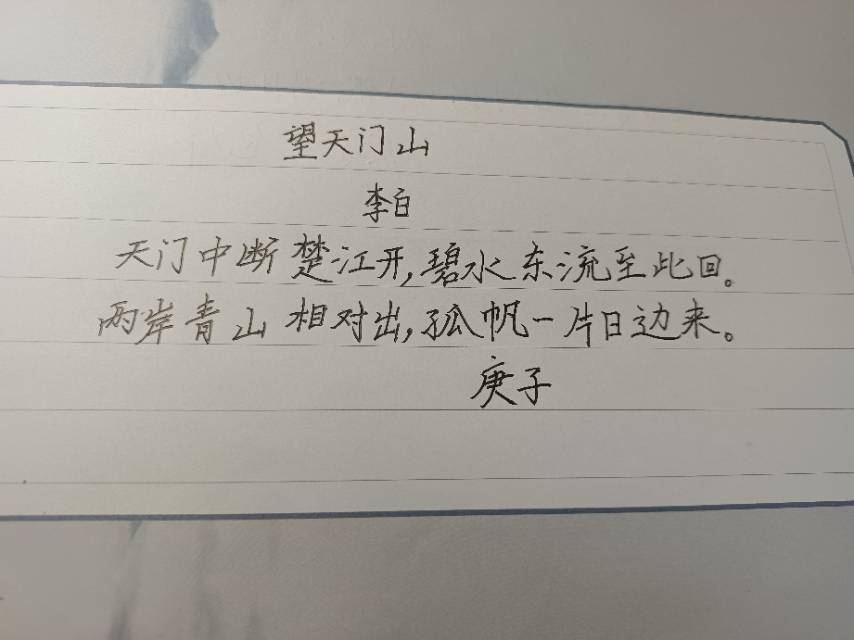 望天门山
李白
天门中断楚江开,碧水东流至此回。
两岸青山相对出,孤帆一片日边来。
庚子